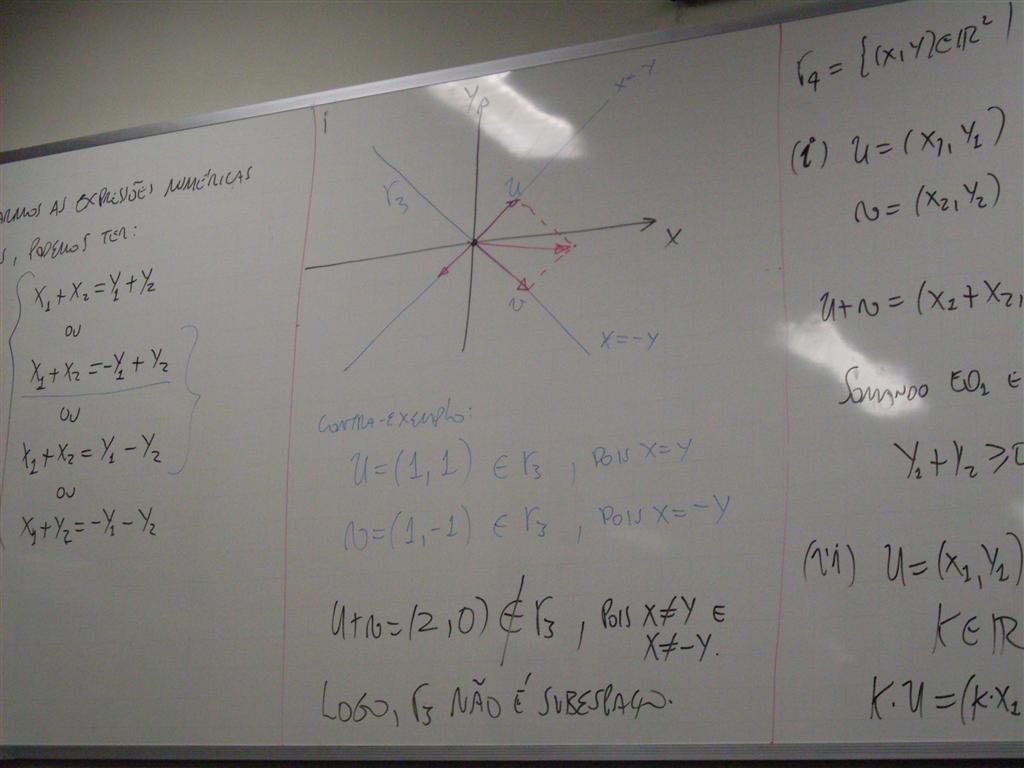 ARMOS AS EXPRESSÕES NUMÉRICAS
S, PODEMOS TER:
X₁+X₂=Y₁+Y₂
OU
X₁+X₂=-Y₁+Y₂
OU
X₁+X₂=Y₁-Y₂
OU
X₁+Y₂=-Y₁-Y₂
Y
X=Y
r₃
u
X
v
X=-Y
CONTRA-EXEMPLO:
U=(1,1) ∈ r₃, POIS X=Y
v=(1,-1) ∈ r₃, POIS X=-Y
U+v=(2,0) ∉ r₃, POIS X≠Y E
X≠-Y.
LOGO, r₃ NÃO É SUBESPAÇO.
r₄={(X,Y)∈ℝ²|
(i) U=(X₁,Y₁)
v=(X₂,Y₂)
U+v=(X₁+X₂,
SOMANDO EQ₁ E
Y₁+Y₂≥0
(ii) U=(X₁,Y₁)
K∈ℝ
K·U=(K·X₁